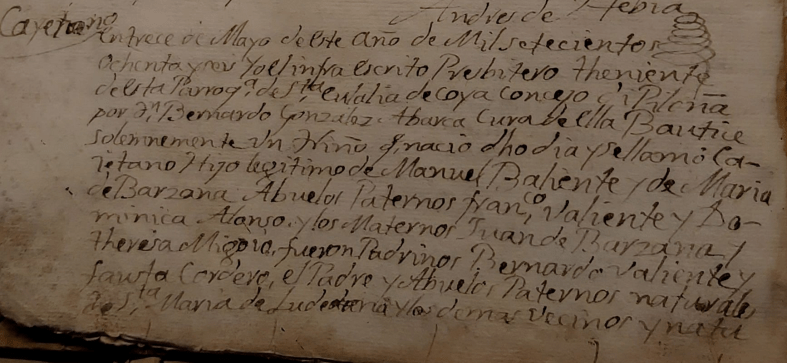 Andres de Hebia
Cayetano
En trece de Mayo de este año de Mil setecientos
Ochenta y seis Yo el infra escrito Presbitero theniente
de esta Parroq.ª de S.ta Eulalia de Coya Concejo de Piloña
por Dn Bernardo Gonzalez Abarca Cura de ella Bautice
solennemente un Niño q. nacio dho dia y se llamó Ca-
ietano Hijo legitimo de Manuel Baliente y de Maria
de Barzana Abuelos Paternos Fran.co Valiente y Do-
minica Alonso, y los Maternos Juan de Barzana y
theresa Migoia, fueron Padrinos Bernardo Valiente y
fausta Cordero, el Padre y Abuelos Paternos naturales
de S.ta Maria de y los demas Vecinos y natu